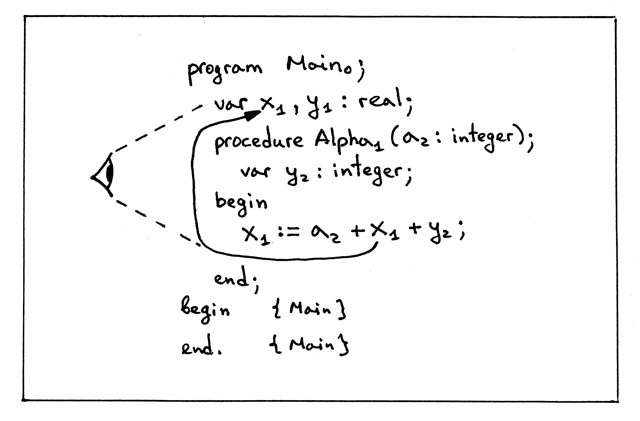 program Main₀;
var x₁, y₁ : real;
procedure Alpha₁ (a₂ : integer);
var y₂ : integer;
begin
x₁ := a₂ + x₁ + y₂;
end;
begin {Main}
end. {Main}